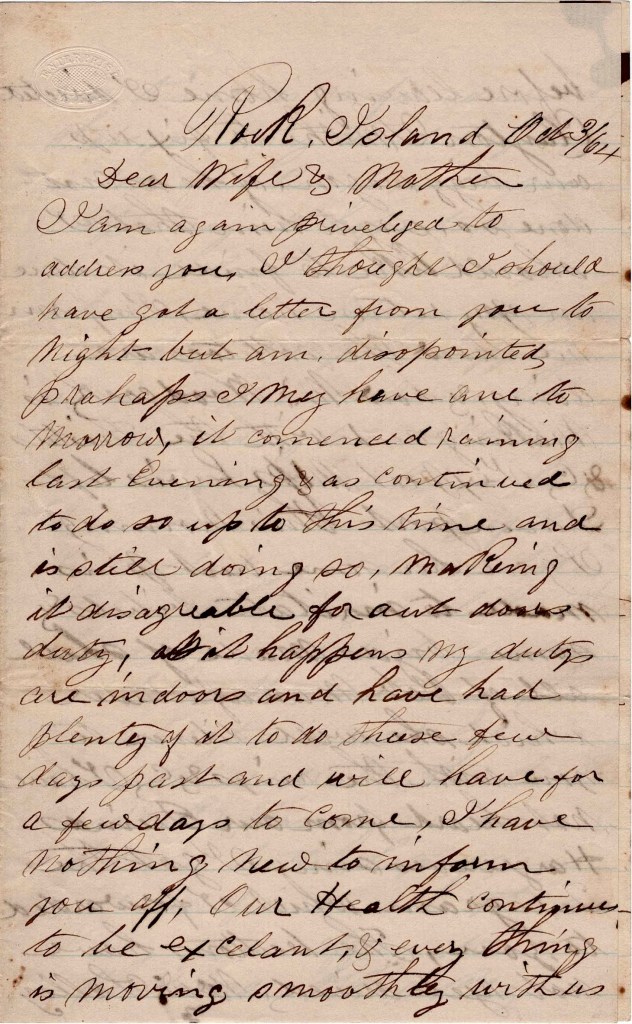 Rock, Island Oct 3/64
Dear Wife & Mother
I am again priveleged to
address you, I thought I should
have got a letter from you to
night but am, disopointed,
prahaps I mey have one to
morrow, it comenced raining
last Evening & as continued
to do so up to this time and
is still doing so, making
it disagreable for out doors
duty, as it happens my dutys
are indoors and have had
plenty of it to do these few
days past and will have for
a few days to come, I have
nothing new to inform
you off, Our Health continues
to be excelant, & every thing
is moving smoothly with us